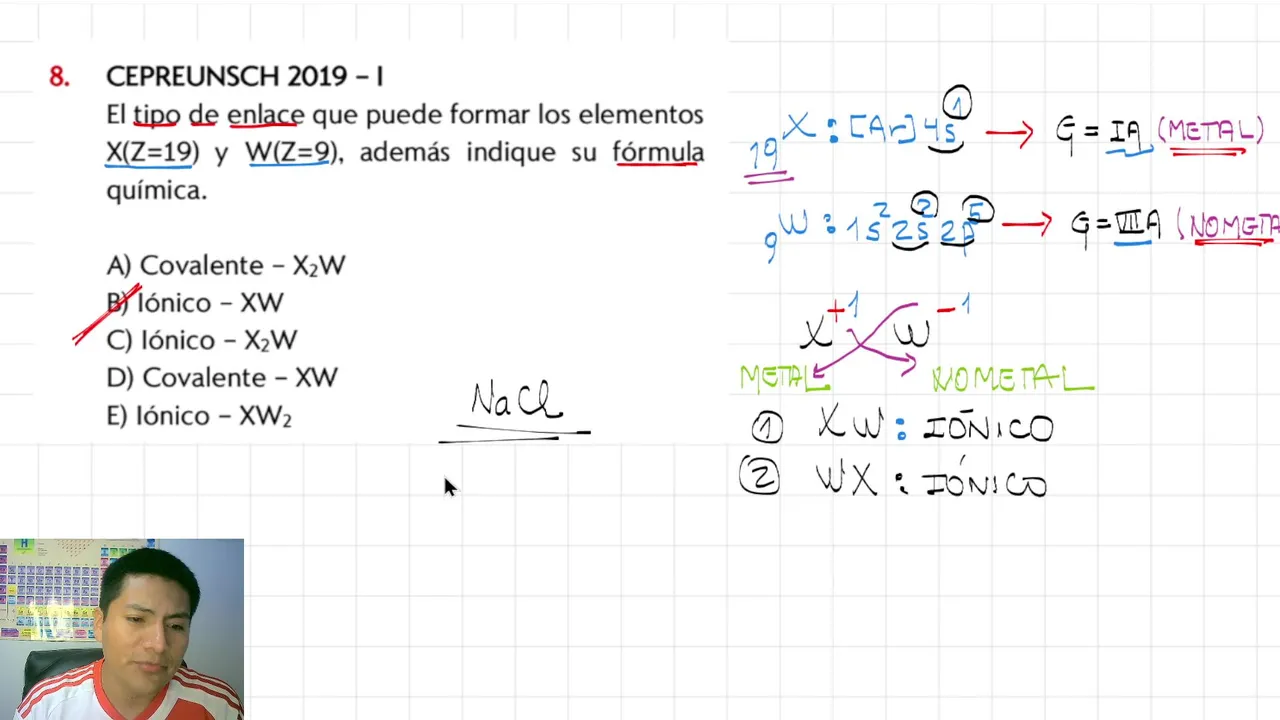 8. CEPREUNSCH 2019 – I
El tipo de enlace que puede formar los elementos
X(Z=19) y W(Z=9), además indique su fórmula
química.
A) Covalente – X₂W
B) Iónico – XW
C) Iónico – X₂W
D) Covalente – XW
E) Iónico – XW₂
NaCl
₁₉X : [Ar] 4s¹ → G = IA (METAL)
₉W : 1s² 2s² 2p⁵ → G = VIIA (NOMETA
X⁺¹ W⁻¹
METAL NOMETAL
① XW : IÓNICO
② WX : IÓNICO